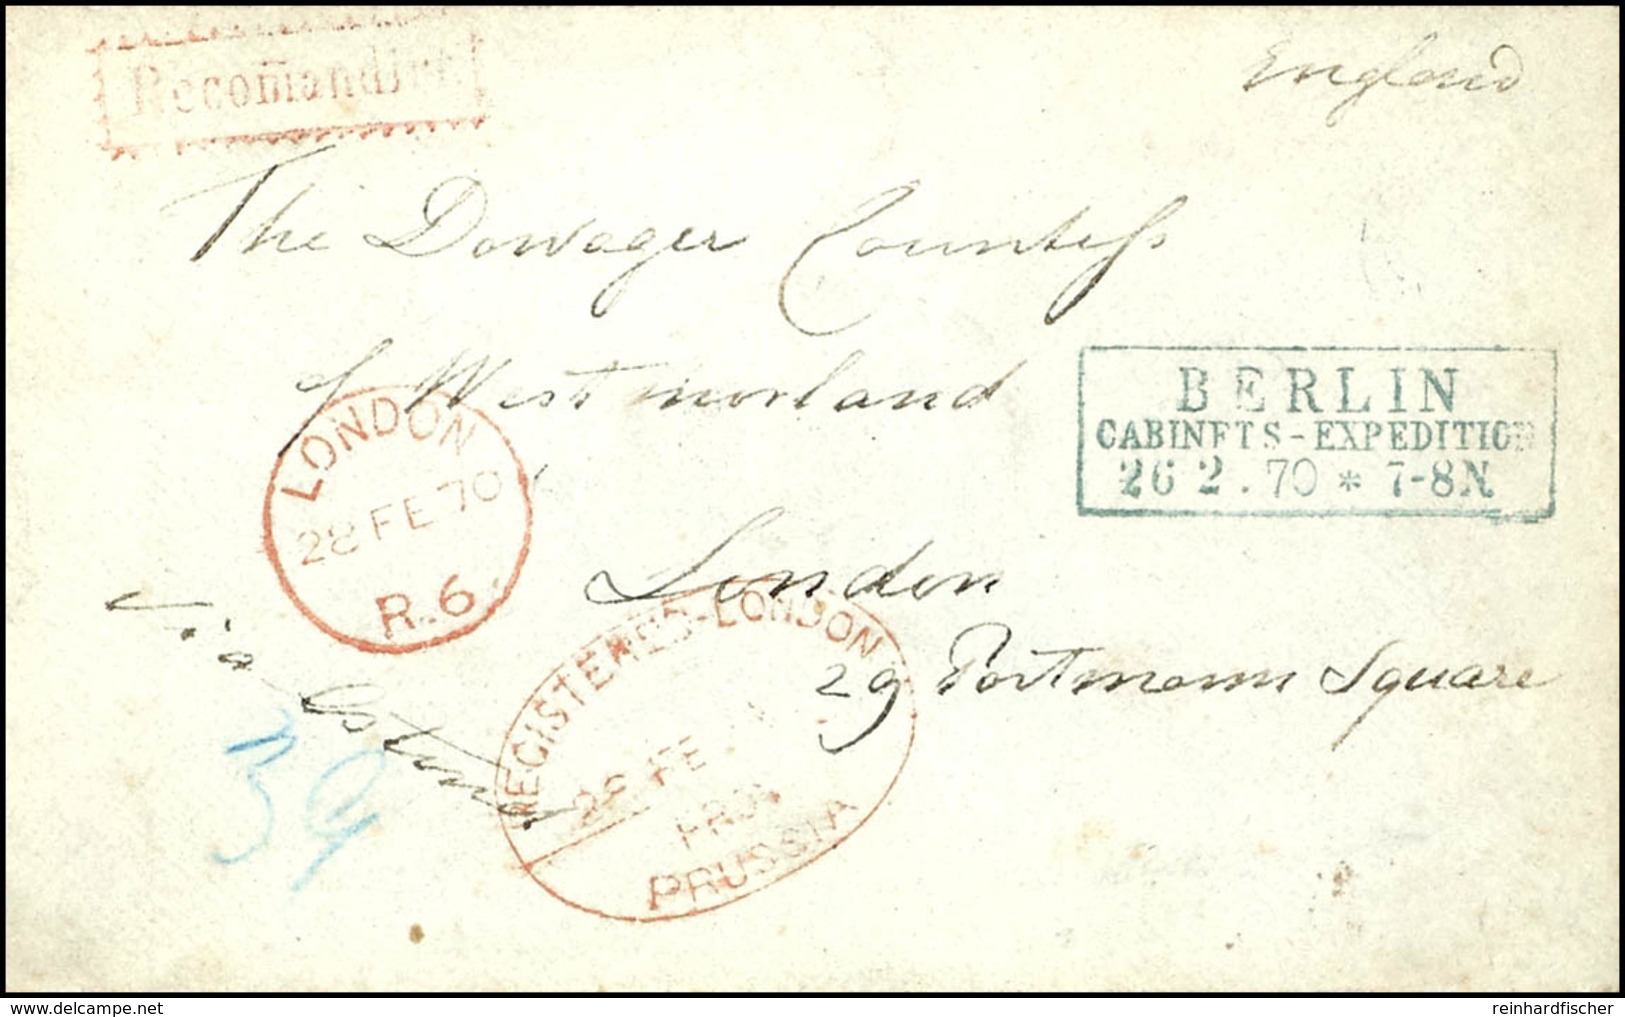 Recom̄andirt
England
The Dowager Countess
of Westmorland
BERLIN
CABINETS-EXPEDITION
26 2. 70 * 7-8N
LONDON
28 FE 70
R.6.
London
29 Portmann Square
Via Ostende
REGISTERED-LONDON
28 FE
FROM
PRUSSIA
delcampe.net
reinhardfischer